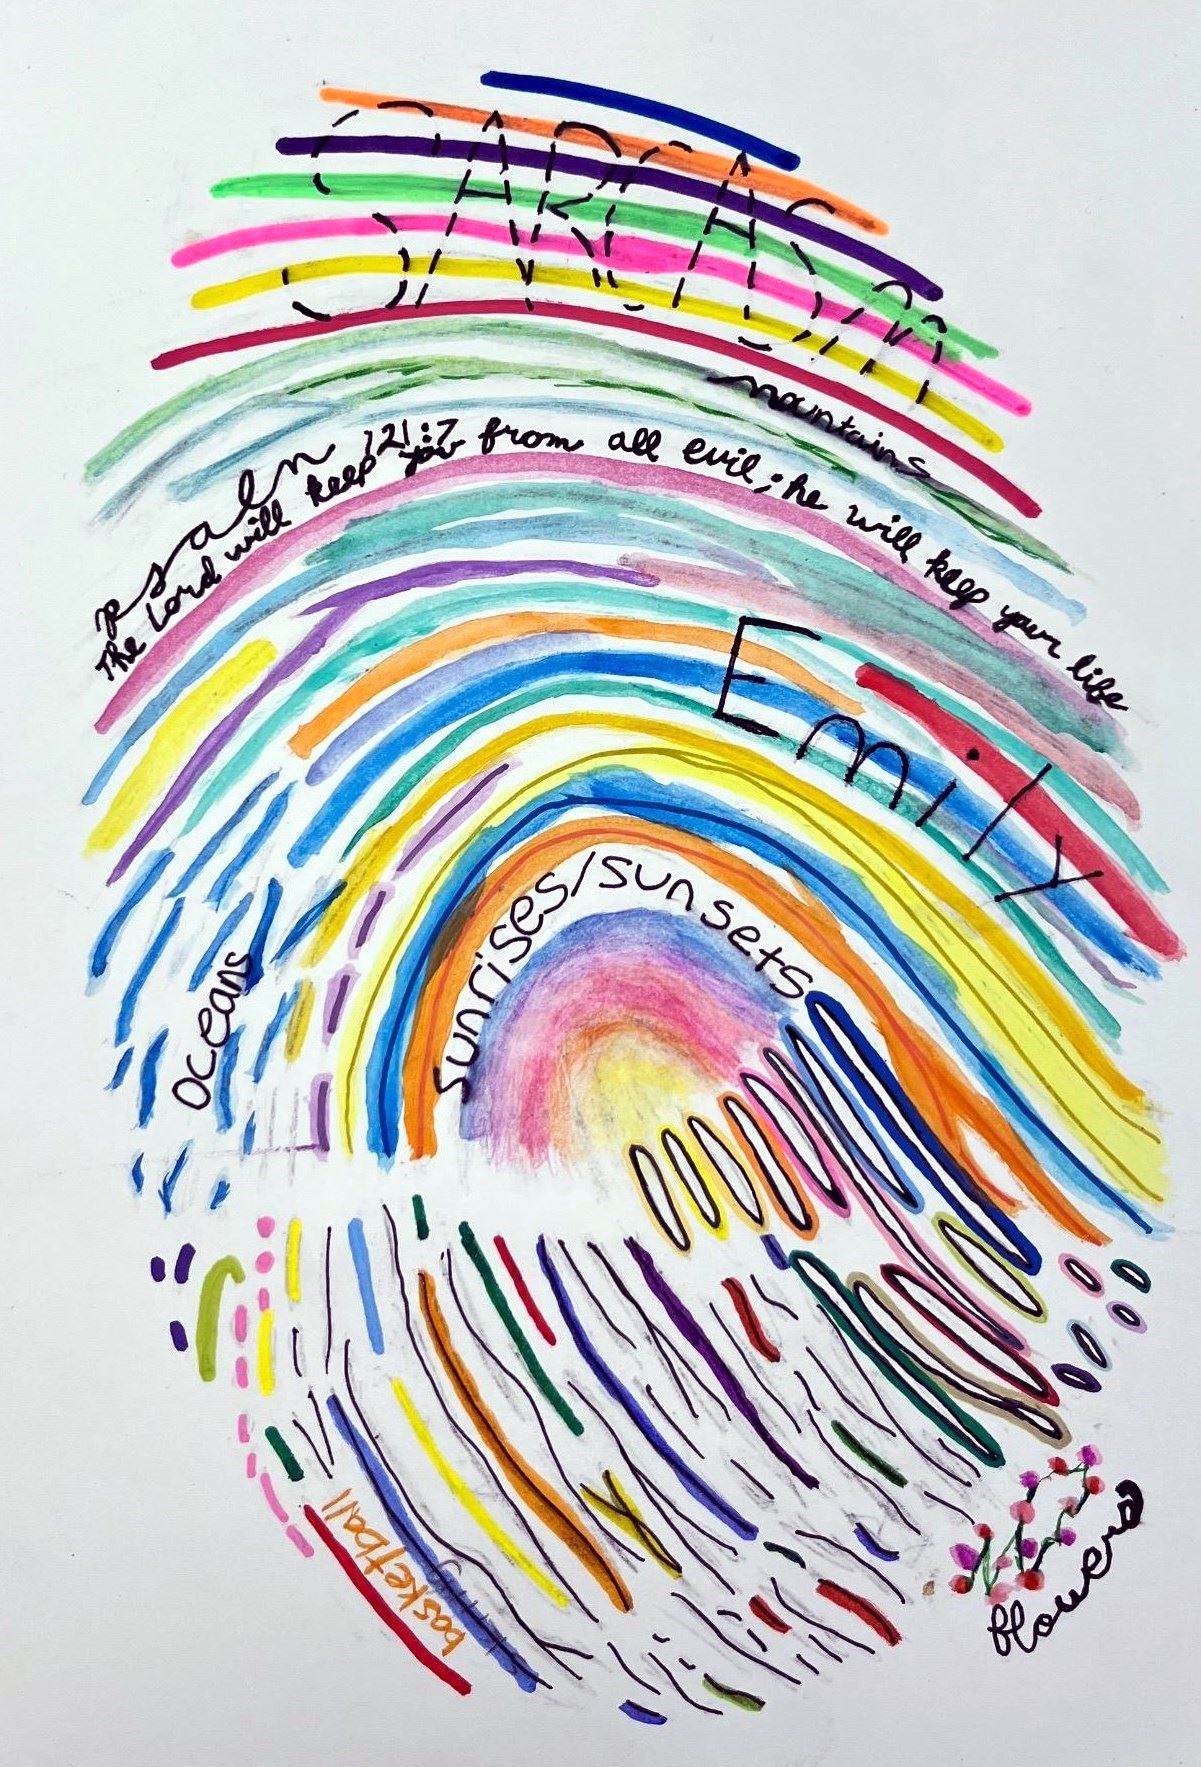 SARCASM
mountains
psalm 121:7
The Lord will keep you from all evil; he will keep your life
Emily
sunrises/sunsets
oceans
basketball
flowers